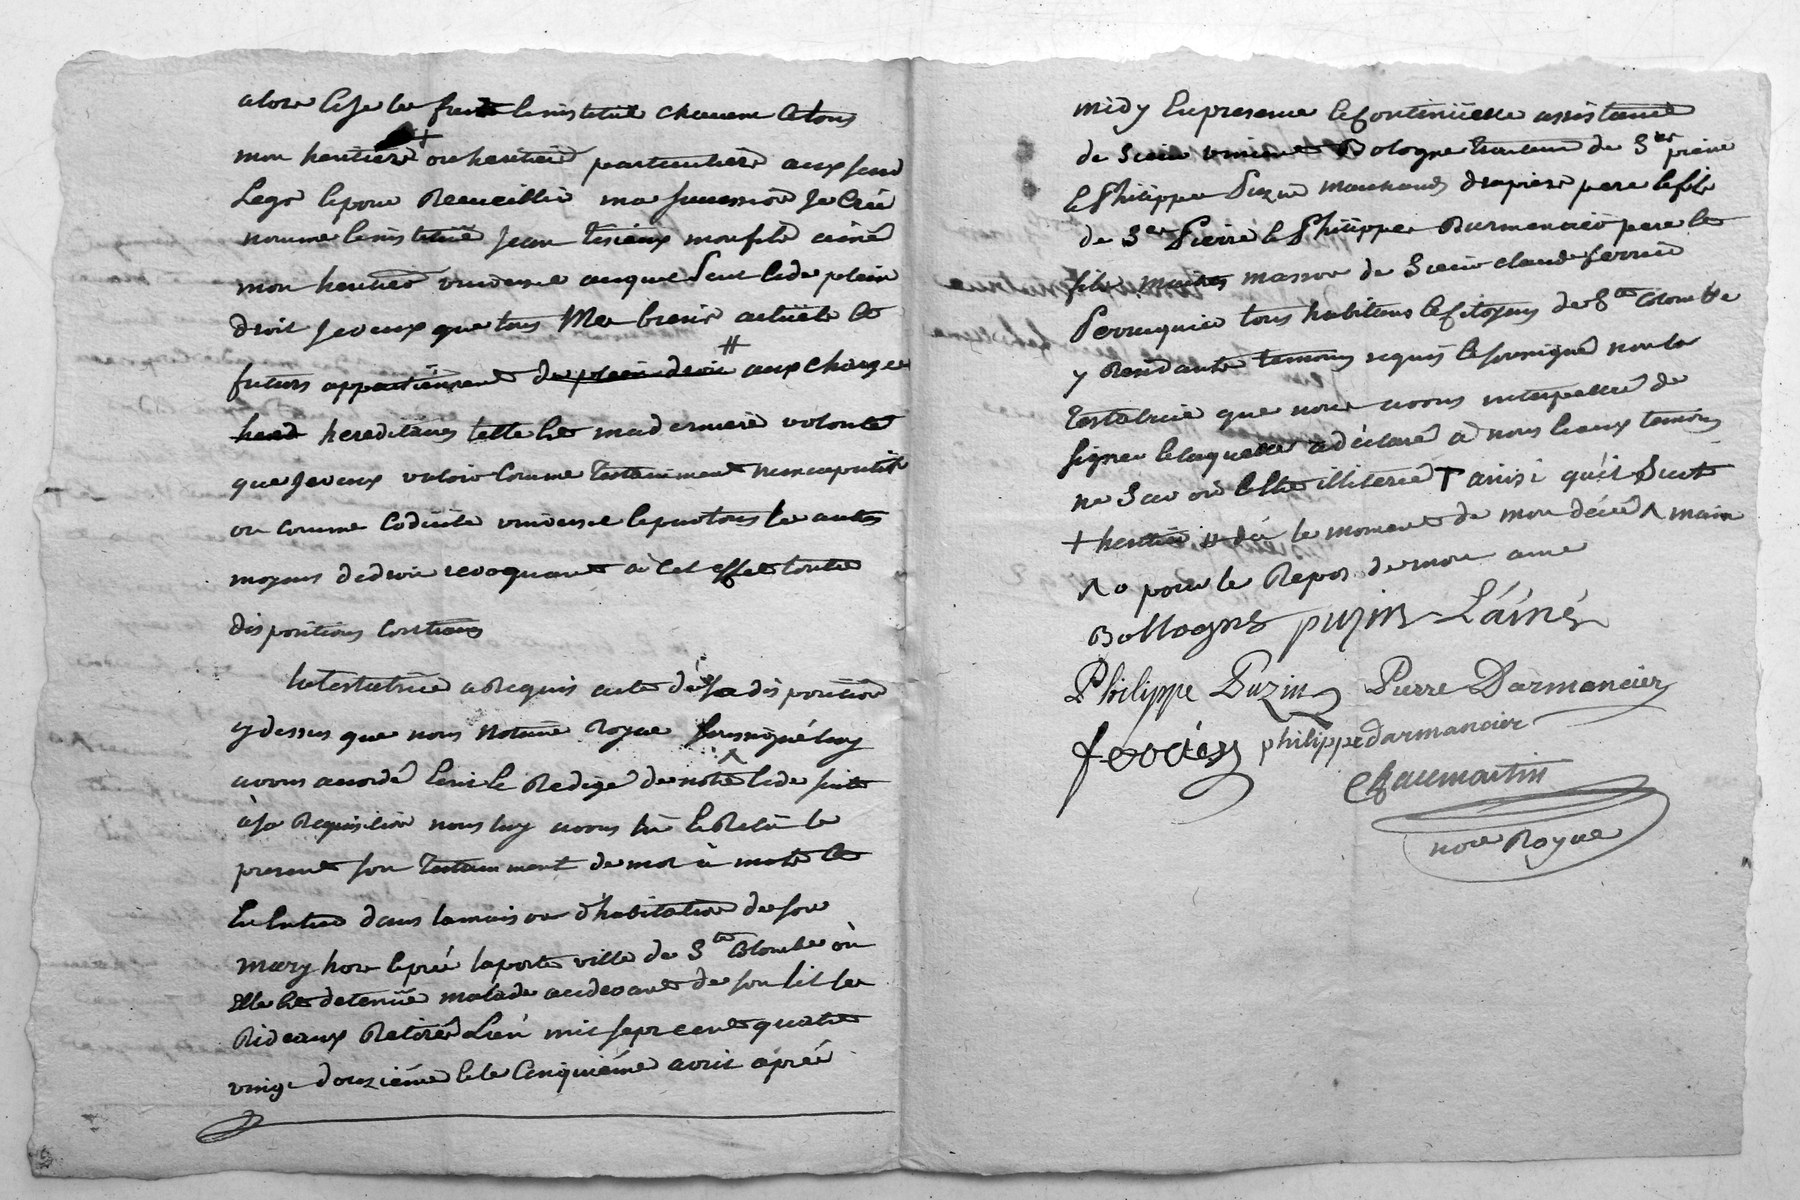 alors lese les fruits les institue chacun et tous
mon heritiere ou heritiers particuliers aux susd
Legs et pour Recueillir ma succession Je Crée
nomme et institue Jean Tisieux mon fils ainé
mon heritier universel auquel seul et de plein
droit Je veux que tous Mes biens actuels et
futurs appartiennent de plein droit # aux charges
hered hereditaires telle est ma derniere volonté
que Je veux valoir comme testamment nuncupatif
ou comme Codicile universel et par tous les autres
moyens de droit revoquant à cet effet toutes
dispositions contraires
La testatrice a Requis acte de sa disposition
cy dessus que nous Notaire Royal soussigné luy
avons accordé Ecrit et Redigé de notre ^ et de suite
à sa Requisition nous luy avons lu et Relu le
present son testamment de mot à mot et
En Entier dans la maison d'habitation de son
mary hors et près la porte ville de Ste Colombe où
Elle est detenüe malade au devant de son lit les
Rideaux Retirés L'an mil sept cent quatre
vingt douzième et le Cinquième avril après
midy En presence et continüelle assistance
de Sieur Bologne de Srs pierre
et Philippe Puzin marchands drapiers pere et fils
de Srs Pierre et Philippe Darmancier pere et
fils maitres masson de Sieur claude ferrier
Perruquier tous habitans et citoyens de Ste Colombe
y Residants temoins requis et soussignés non la
Testatrice que nous avons interpellée de
signer et laquelle a déclaré à nous et aux temoins
ne Savoir Etre illiterée † ainsi qu'il Suit
+ heritier # dès le moment de mon décès ^ main
^o pour le Repos de mon ame
Bollogne puzin L'áíné
Philippe Puzin Pierre Darmancier
philippe darmancier
Chaumartin
nore Royal